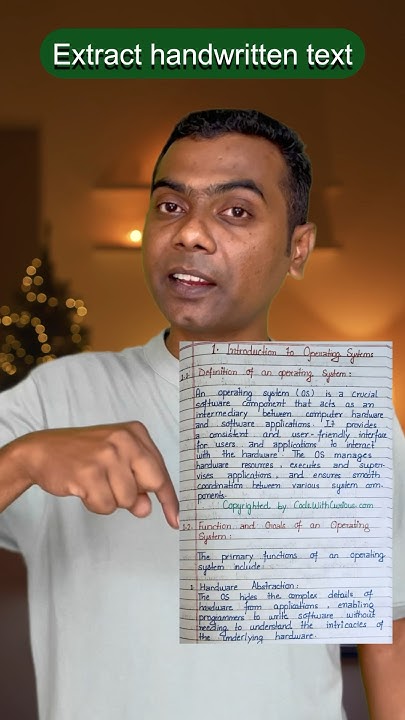 Extract handwritten text
1. Introduction to Operating Systems
1.1. Definition of an operating System :
An operating system (OS) is a crucial
software component that acts as an
intermediary between computer hardware
and software applications. It provides
a consistent and user-friendly interface
for users and applications to interact
with the hardware. The OS manages
hardware resources, executes and super-
vises applications, and ensures smooth
coordination between various system com-
ponents.
Copyrighted by CodeWithCurious.com
1.2. Function and Goals of an Operating
System :
The primary functions of an operating
system include:
1. Hardware Abstraction:
The OS hides the complex details of
hardware from applications, enabling
programmers to write software without
needing to understand the intricacies of
the underlying hardware.